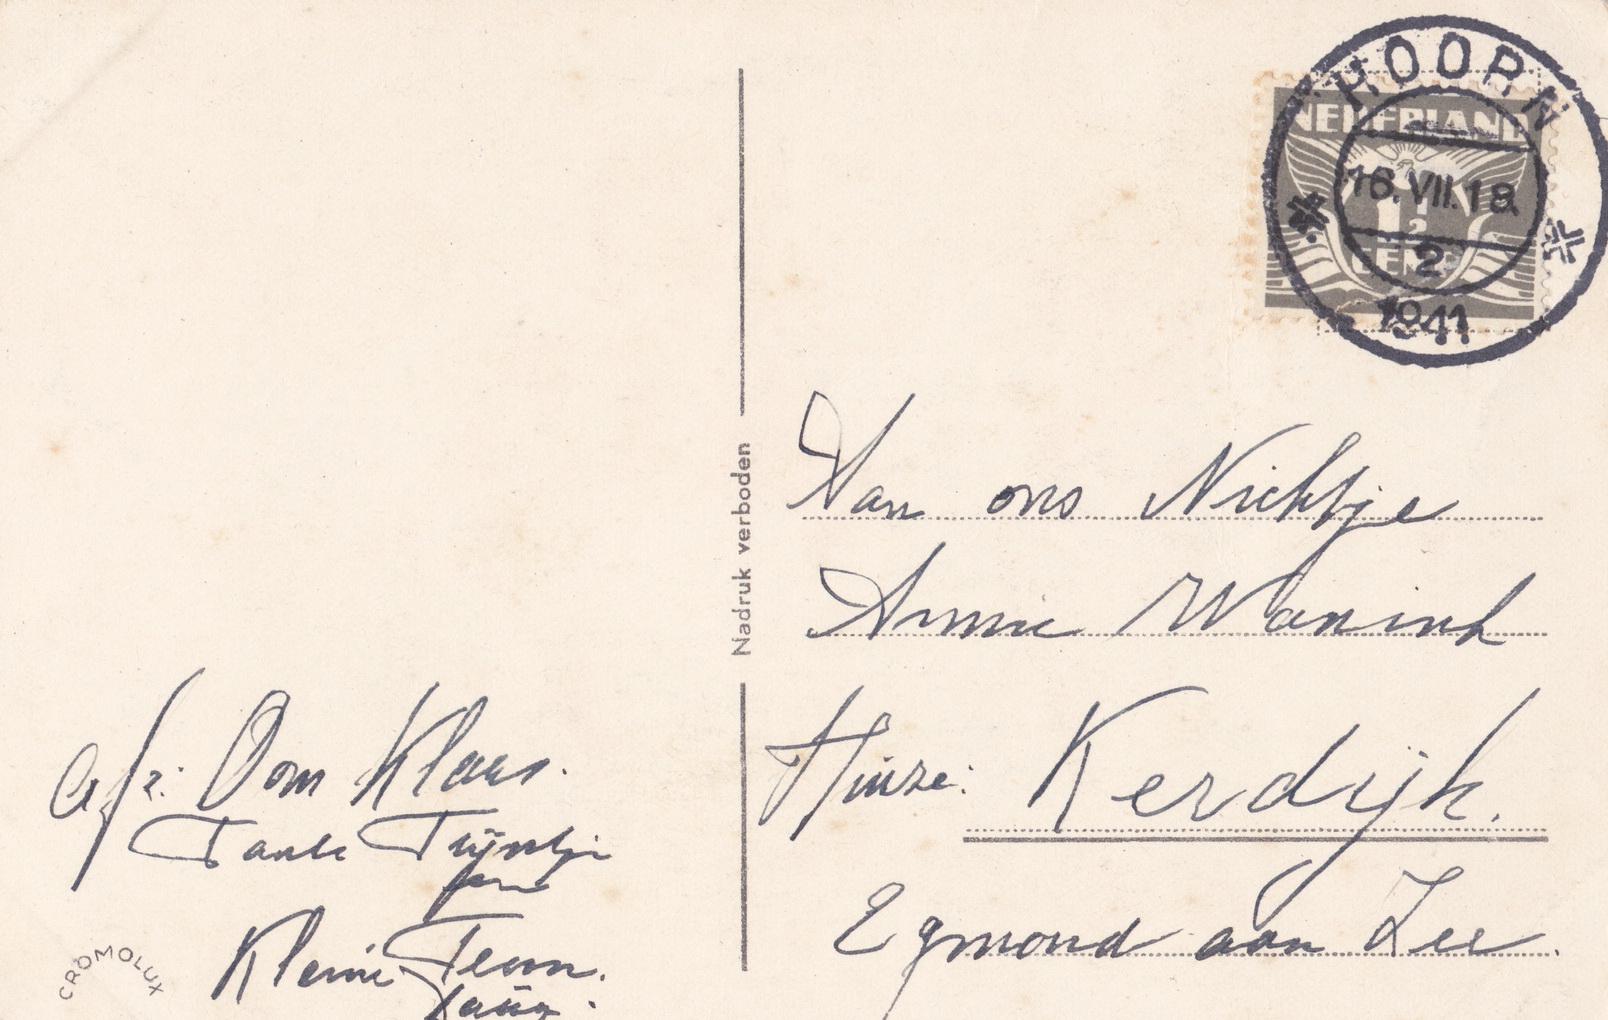 HOORN
NEDERLAND
16.VII.18
1½
CENT
2
1941
Nadruk verboden
Aan ons Nichtje
Annie Wanink
Huize: Kerdijk.
Egmond aan Zee.
afz: Oom Klaas.
Tante Tijntje
en
Kleine Teun.
CROMOLUX